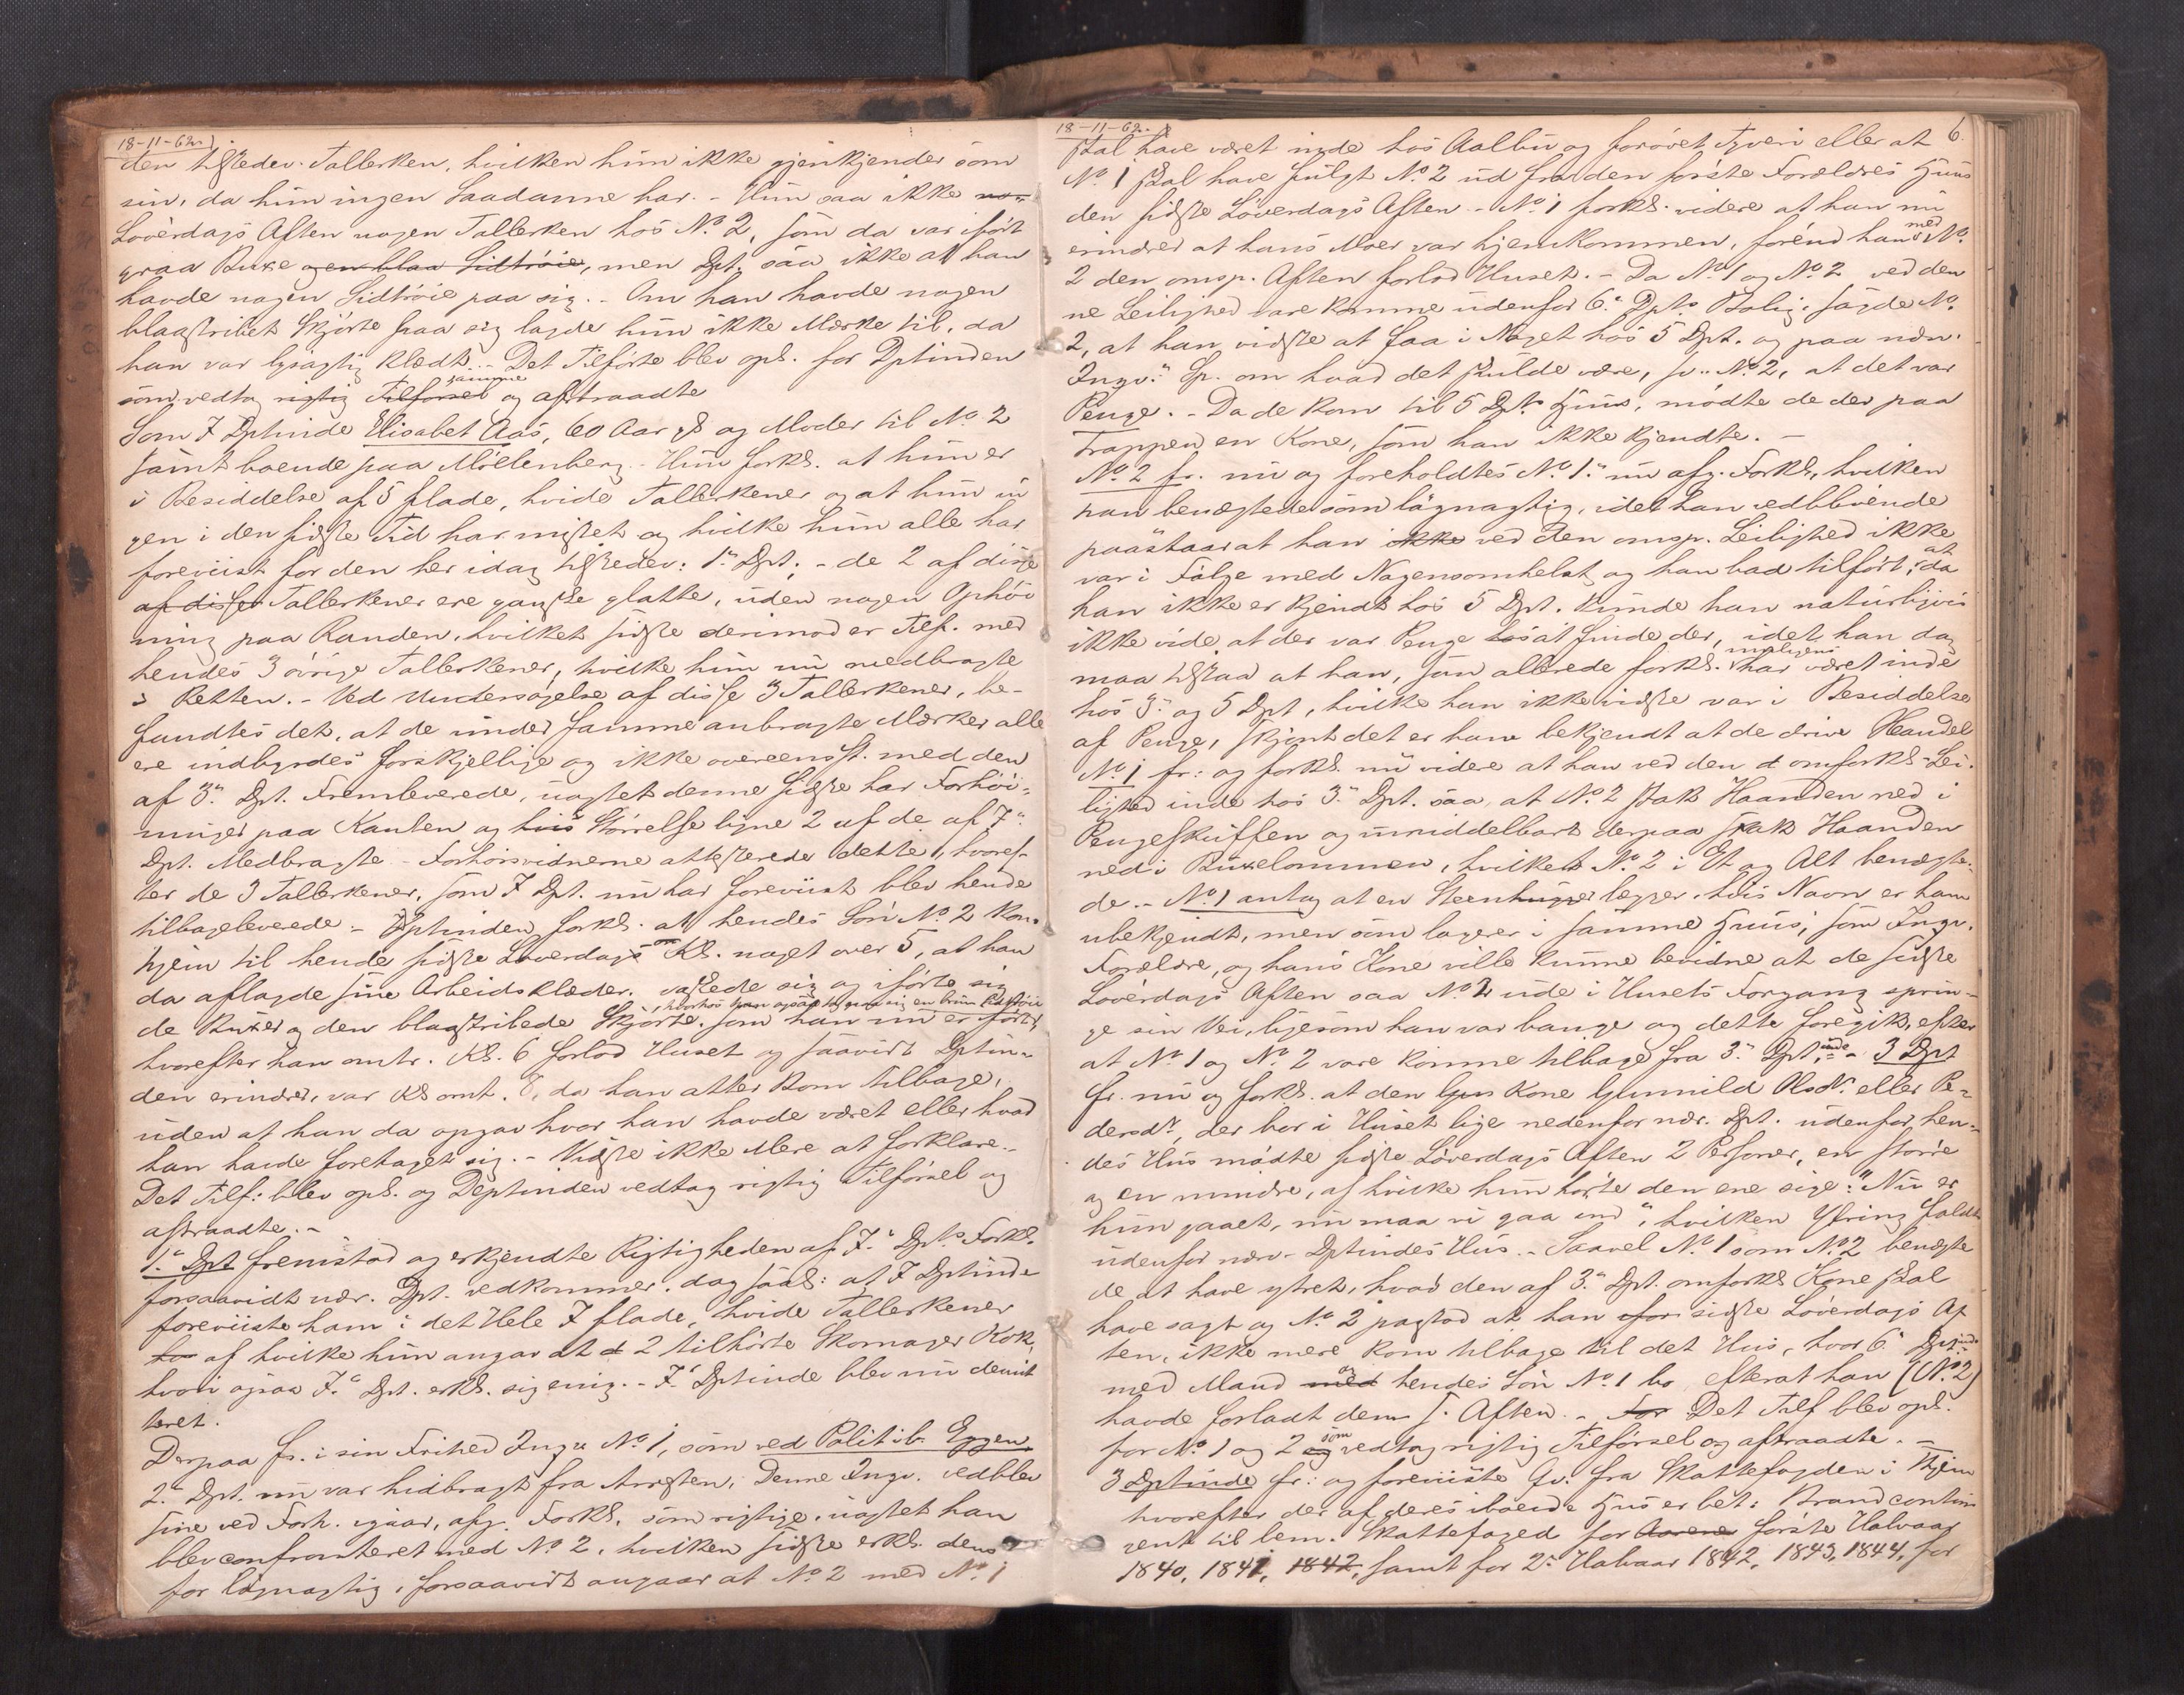 18-11-62.
den tilstedev. Tallerken, hvilken hun ikke gjenkjender som
sin, da hun ingen Saadanne har. - Hun saa ikke no-
Löverdags Aften nogen Tallerken hos No. 2, som da var iført
graa Buxe og en blaa Sidtröie, men Dpt. saa ikke at han
havde nogen Sidtröie paa sig. - Om han havde nogen
blaastribet Skjörte paa sig lagde hun ikke Mærke til, da
han var lysagtig klædt. - Det Tilförte blev opl. for Dptinden
som vedtog rigtig Tilförsel samme og aftraadte
Som 7 Dptinde Elisabet Aas, 60 Aar gl. og Moder til No. 2
samt boende paa Möllenberg. Hun forkl. at hun er
i Besiddelse af 5 flade, hvide Tallerkener og at hun in
gen i den sidste Tid har mistet og hvilke hun alle har
foreviist for den her idag tilstedev: 1.ᵃ Dpt. - de 2 af disse
af disse Tallerkener ere ganske glatte, uden nogen Ophöi
ning paa Randen, hvilket sidste derimod er Tilf. med
hendes 3 övrige Tallerkener, hvilke hun nu medbragte
i Retten. - Ved Undersøgelse af disse 3 Tallerkener, be-
fandtes det, at de under samme anbragte Mærker alle
ere indbyrdes forskjellige og ikke overeensst. med den
af 3.ᵃ Dpt. Fremleverede, uagtet denne sidste har Forhöi-
ninger paa Kanten og hvis Störrelse ligne 2 af de af 7.ᵃ
Dpt. Medbragte - Forhörsvidnerne attesterede dette, hvoref-
ter de 3 Tallerkener, som 7 Dpt. nu har foreviist blev hende
tilbageleverede. - Dptinden forkl. at hendes Sön No. 2 kom
hjem til hende sidste Löverdags Kl. noget over 5, at han
da aflagde sine Arbeidsklæder, vaskede sig og iförte sig
, hvorhos han ogsaa tog paa sig en brun Sidtröie
de Buxer og den blaastribede Skjörte, som han nu er iført,
hvorefter han omtr. Kl. 6 forlod Huset og saavidt Dptin-
den erindrer, var Kl. omt. 8, da han atter kom tilbage,
uden at han da opgav hvor han havde været eller hvad
han havde foretaget sig. - Vidste ikke Mere at forklare. -
Det Tilf: blev opl. og Deptinden vedtog rigtig Tilförsel og
aftraadte. -
1.ᵃ Dpt fremstod og erkjendte Rigtigheden af 7.ᵃ Dpts Forkl.
forsaavidt nær. Dpt. vedkommer, dog saal: at 7 Dptinde
foreviiste ham i det Hele 7 flade, hvide Tallerkener
to af hvilke hun angav at d 2 tilhörte Skomager Kok,
hvori ogsaa 7.ᵃ Dpt. erkl. sig enig. - 7.ᵃ Dptinde blev nu demit
teret.
Derpaa fr. i sin Frihed Ingv No. 1, som ved Politib. Eggen
2.ᵃ Dpt. nu var hidbragt fra Arresten, Denne Ingv. vedblev
sine ved Forh. igaar, afg. Forkl. som rigtige, uagtet han
blev confronteret med No. 2, hvilken sidste erkl. dem
for lögnagtig, forsaavidt angaar at No. 2 med No. 1
18-11-62.
6.
skal have været inde hos Aalbu og forövet Tyveri eller at
No. 1 skal have fulgt No. 2 ud fra den förste Forældres Huus
den sidste Löverdags Aften. - No. 1 forkl. videre at han nu
erindrer at hans Moer var hjemkommen, förend han med No.
2 den omsp. Aften forlod Huset. - Da No. 1 og No. 2 ved den
ne Leilighed vare komne udenfor 6.ᵃ Dpts Bolig, sagde No.
2, at han vidste at faa i Noget hos 5 Dpt. og paa nær.
Ingv.ˢ Sp. om hvad det skulde være, sv. No. 2, at det var
Penge. - Da de kom til 5 Dpts Huus, mödte de der paa
Trappen en Kone, som han ikke kjendte. -
No. 2 fr. nu og foreholdtes No. 1.ˢ nu afg. Forkl, hvilken
han benægtede som lögnagtig, idet han vedblivende
paastaar at han ikke ved den omsp. Leilighed ikke
var i Fölge med Nogensomhelst og han bad tilfört, at da
han ikke er kjendt hos 5 Dpt. kunde han naturligviis
ikke vide, at der var Penge hos at finde der, idet han dog
maa tilstaa at han, som allerede forkl. har været inde
hos 3.ᵃ og 5 Dpt, hvilke han ikke vidste var i Besiddelse
af Penge, skjönt det er ham bekjendt at de drive Handel
No. 1 fr: og forkl. nu videre at han ved den d omforkl. Lei-
lighed inde hos 3.ᵃ Dpt. saa, at No. 2 stak Haanden ned i
Pengeskuffen og umiddelbart derpaa stak Haanden
ned i Buxelommen, hvilket No. 2 i Et og Alt benægte-
de. - No. 1 antog at en Steenlægger, hvis Navn er ham
ubekjendt, men som logerer i samme Huus, som Ingv.
Forældre, og hans Kone ville kunne bevidne at de sidste
Löverdags Aften saa No. 2 ude i Husets Forgang sprin-
ge sin Vei, ligesom han var bange og dette foregik, efter
at No. 1 og No. 2 vare komne tilbage fra 3.ᵃ Dptinde - 3 Dpt
fr. nu og forkl. at den Kone Gunnild Olsdr. eller Pe-
dersdr, der bor i Huset lige nedenfor nær. Dpt. udenfor hen-
des Hus mödte sidste Löverdags Aften 2 Personer, en större
og en mindre, af hvilke hun hörte den ene sige: "Nu er
hun gaaet, nu maa vi gaa ind", hvilken Ytring faldt
udenfor nær. Dptindes Hus. - Saavel No. 1 som No. 2 benægte
de at have ytret, hvad den af 3.ᵃ Dpt. omforkl. Kone skal
have sagt og No. 2 paastod at han sidste Löverdags Af
ten, ikke mere kom tilbage til det Hus, hvor 6.ᵃ Dptinde
med Mand med og hendes Sön No. 1 bo efterat han (No. 2)
havde forladt dem s. Aften. - For Det Tilf blev opl.
for No. 1 og 2 og som vedtog rigtig Tilförsel og aftraadte. -
3 Dptinde fr: og foreviiste Qv. fra Skattefogden i Thjem
hvorefter der af deres iboende Hus er bet: Brandcontin
gent til bem. Skattefoged for Aarene förste Halvaar
1840, 1841, 1842, samt for 2.ᵗ Halvaar 1842, 1843, 1844, for